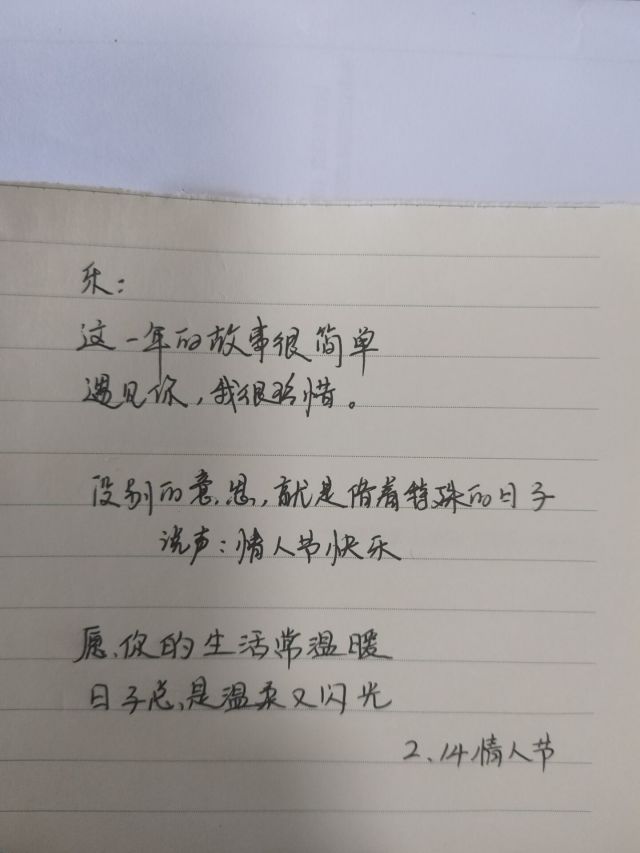 乐：
这一年的故事很简单
遇见你，我很珍惜。
没别的意思，就是借着特殊的日子
说声：情人节快乐
愿你的生活常温暖
日子总是温柔又闪光
2.14情人节